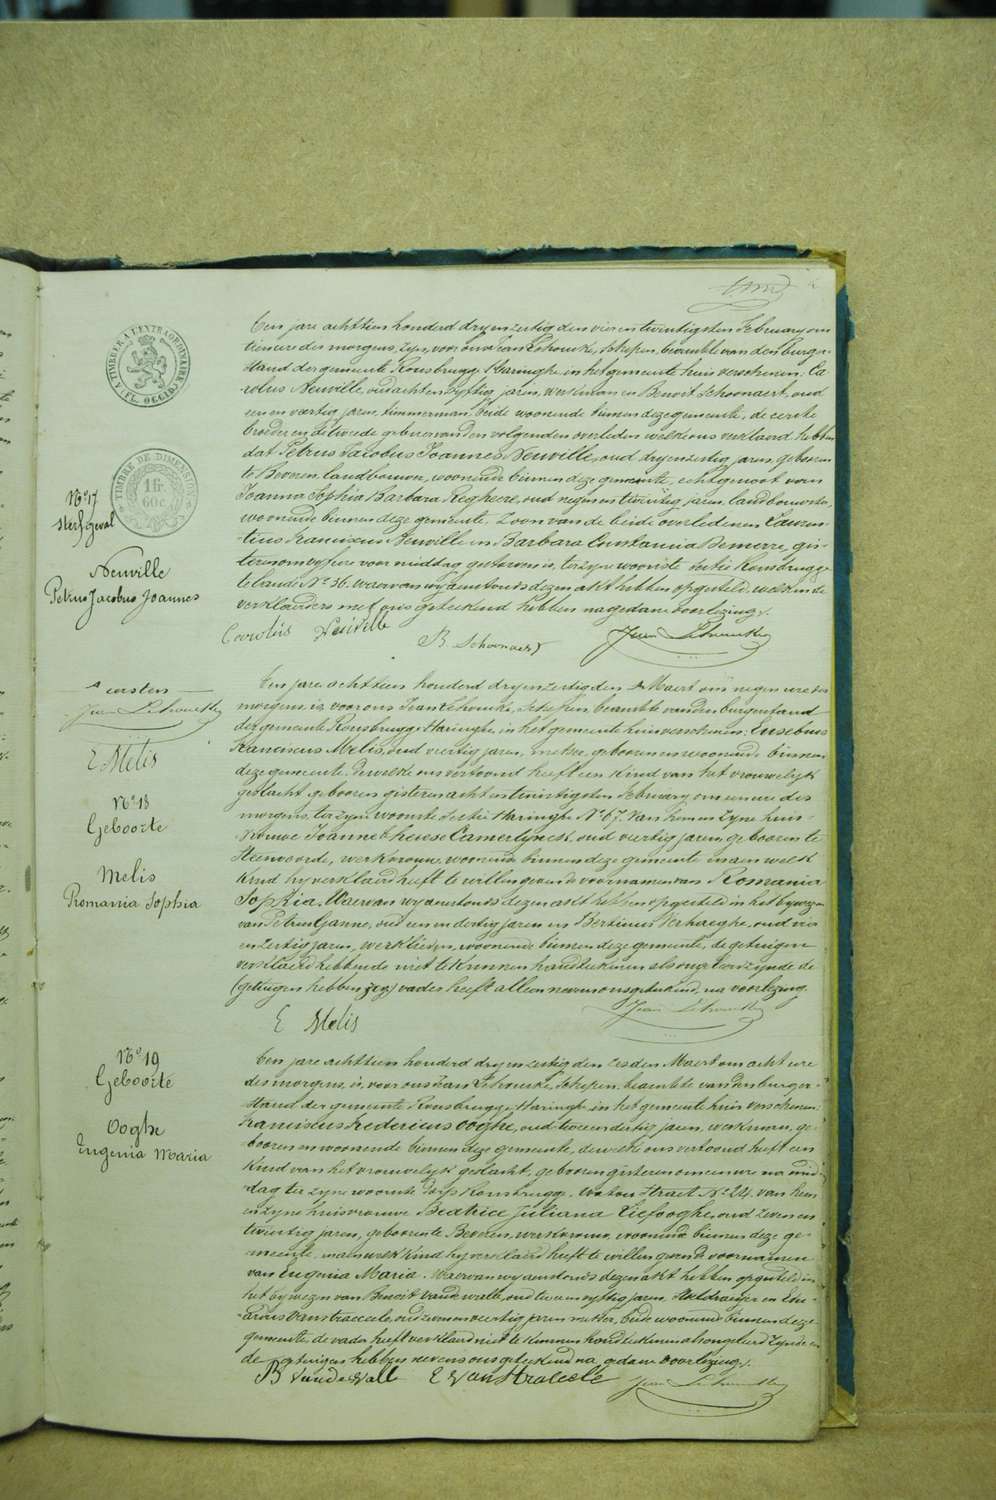 TIMBRE A L'EXTRAORDINAIRE
TIMBRE DE DIMENSION
1 fr.
60 c.
N° 17
sterfgeval
Neuville
Petrus Jacobus Joannes
Een jare achttien honderd dry en zestig den vier en twintigsten February om
tien ure des morgens, zyn, voor ons Jean Lehoucke, schepen, beambte van den burger-
stand der gemeente Rousbrugge Haringhe, in het gemeente huis verschenen, Ca-
rolus Neuville, oud acht en vyftig jaren, werkman en Benoit Schoonaert, oud
een en veertig jaren, timmerman, beide woonende binnen deze gemeente, de eerste
broeder en de tweede gebuer van den volgenden overleden welke ons verklaerd hebben
dat Petrus Jacobus Joannes Neuville, oud dry en zestig jaren, geboren
te Beveren, landbouwer, woonende binnen deze gemeente, echtgenoot van
Joanna Sophia Barbara Regheere, oud negen en twintig jaren, landbouwster,
woonende binnen deze gemeente. Zoon van de beide overledenen Lauren-
tius Franciscus Neuville en Barbara Constancia Demerre, gis-
teren om vyf ure voor middag gestorven is, ter zyne wooniste sectie Rousbrugge
te lande N° 36. waer van wy aenstonds dezen akt hebben opgesteld, welken de
verklaerders met ons geteekend hebben na gedane voorlezing.
Carolus Neuville
B. Schoonaert
Jean Lehoucke
eersten
Jean Lehoucke
E Melis
N° 18
Geboorte
Melis
Romania Sophia
Een jare achttien honderd dry en zestig den Maert om negen ure des
morgens, is voor ons Jean Lehoucke, schepen, beambte van den burgerstand
der gemeente Rousbrugge Haringhe, in het gemeente huis verschenen: Eusebius
Franciscus Melis, oud veertig jaren, metser, geboren en woonende binnen
deze gemeente. Dewelke ons vertoond heeft een kind van het vrouwelyk
geslacht, geboren gisteren acht en twintigsten February, om een ure des
morgens, ter zyne wooniste sectie Haringhe N° 67. van hem en zyne huis-
vrouwe Joanne Therese Camerlynck, oud veertig jaren, geboren te
Steenvoorde, werkvrouw, woonende binnen deze gemeente en aen welk
kind hy verklaerd heeft te willen geven de voornamen van Romania
Sophia. Waer van wy aenstonds dezen akt hebben opgesteld in het bywezen
van Petrus Ganne, oud een en dertig jaren en Bertinus Verhaeghe, oud vier
en zestig jaren, werklieden, woonende binnen deze gemeente, de getuigen
verklaerd hebbende niet te kunnen handteekenen als ongeleerd zynde de
(getuigen hebben zeg) vader heeft alleen nevens ons geteekend, na voorlezing.
E Melis
Jean Lehoucke
N° 19
Geboorte
Ooghe
Eugenia Maria
Een jare achttien honderd dry en zestig den zesden Maert om acht ure
des morgens, is, voor ons Jean Lehoucke, schepen, beambte van den burger-
stand der gemeente Rousbrugge Haringhe in het gemeente huis verschenen:
Franciscus Fredericus Ooghe, oud twee en dertig jaren, werkman, ge-
boren en woonende binnen deze gemeente, dewelke ons vertoond heeft een
kind van het vrouwelyk geslacht, geboren gisteren om een ure na mid-
dag ter zyne wooniste dorp Rousbrugge, Watou straet N° 24. van hem
en zyne huisvrouwe Beatrice Juliana Liefooghe, oud zeven en
twintig jaren, geboren te Beveren, werkvrouw, woonende binnen deze ge-
meente, en aen welk kind hy verklaerd heeft te willen geven de voornamen
van Eugenia Maria. Waer van wy aenstonds dezen akt hebben opgesteld in
het bywezen van Benoit Vande walle, oud twee en vyftig jaren, en Edu-
ardus Vanstraceele, oud zeven en veertig jaren, metser, beide woonende binnen deze
gemeente, de vader heeft verklaerd niet te kunnen handteekenen als ongeleerd zynde en
de getuigen hebben nevens ons geteekend na gedane voorlezing.
B Vandewalle
E Vanstraceele
Jean Lehoucke